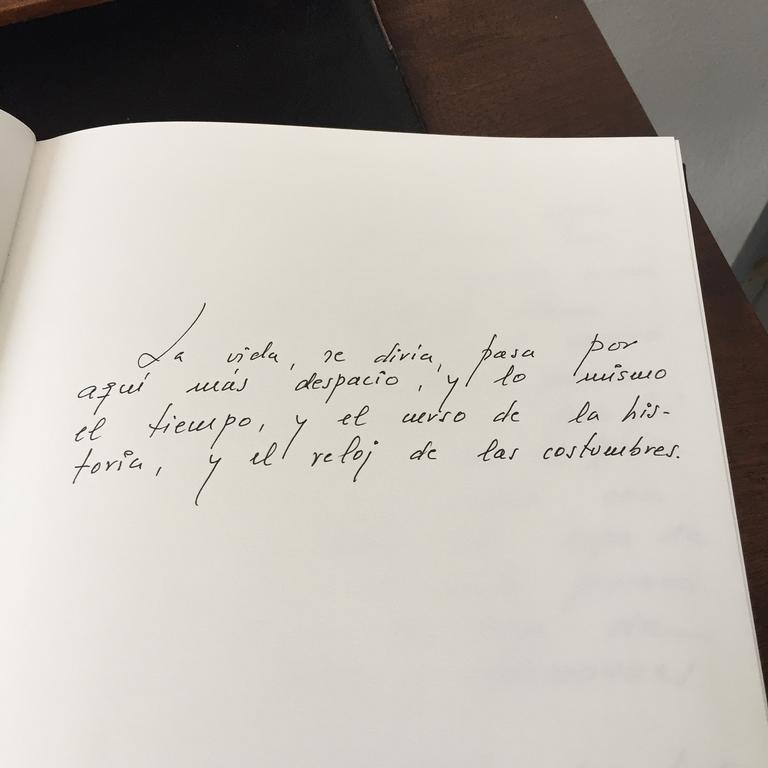 La vida, se diría, pasa por
aquí más despacio, y lo mismo
el tiempo, y el curso de la his-
toria, y el reloj de las costumbres.